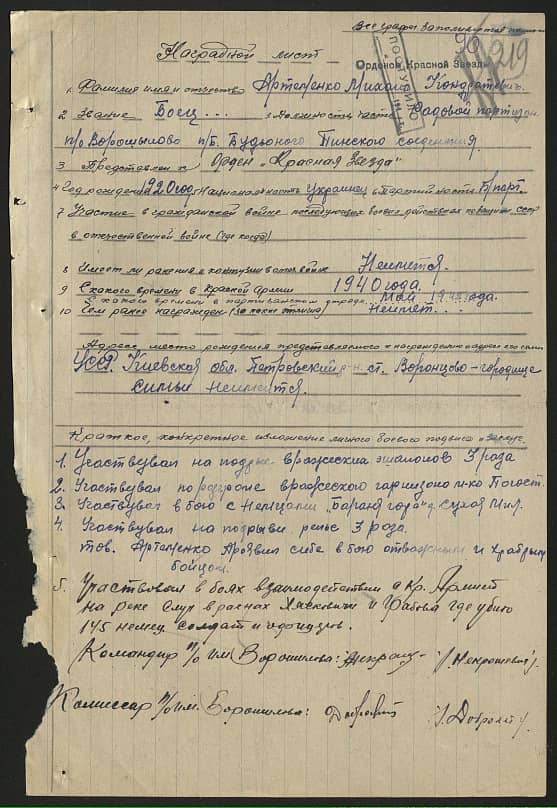 Все графы заполняются
99
219
Наградной лист
Орденом Красной Звезды
ПОГРУЖЕНО
1. Фамилия имя и отчество Артеменко Михаил Кондратович.
2 Звание Боец... Должность часть Рядовой партизан
п/о Ворошылово п/б. Будьоного Пинского соединения.
3. Представлен к Орден „Красная Звезда"
4 Год рождения 1920 год, Национальность украинец 6 Партийность б/парт.
7 Участие в гражданской войне последующих боевых действиях по защите СССР
в отечественной войне (где когда)
8 Имеет ли ранения и контузии в отеч. войне Неимется.
9 С какого времени в Красной Армии 1940 года.
С какого времени в партизанском отряде Май года.
10 Чем ранее награжден (за какие отличия) Неимеет...
Адрес место рождения представляемого к награждению и адрес его семьи
УССР. Киевская обл. Петровский р-н ст. Воронцово-городище
симьи неимеится.
Краткое, конкретное изложение личного боевого подвига
1. Участвувал на подрыве вражеских эшалонов 3 роза
2. Участвувал по розгроме вражеского гарнизона м-ко Погост.
3. Участвувал в бою с Немцами „Бараня гора" д. Сухая Мил.
4. Участвувал на подрыви рельс 3 роза
тов. Артеменко проявил себе в бою отважным и храбрым
бойцом.
5. Участвовал в боях взаимодействии с Кр. Армией
на реке Случ в раенах Ляховичи и Грабова где убито
145 немец. солдат и офицеров.
Командир п/о им. Ворошилова: /Некрашевич/.
Комиссар п/о им. Ворошилова: